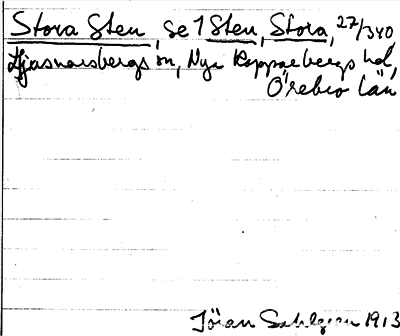 Stora Sten, se 1 Sten, Stora, 27/340
Ljusnarsbergs sn, Nya Kopparbergs hd,
Örebro län
Jöran Sahlgren 1913